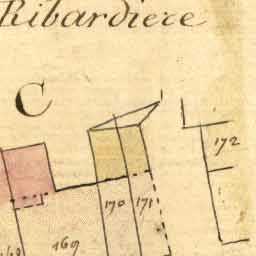 Ribardiere
C
172
170 171
169